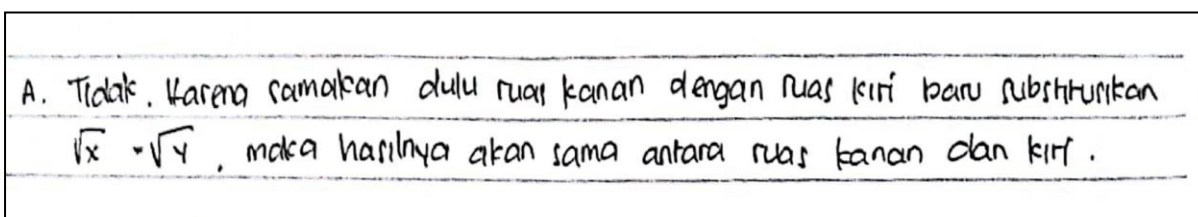 A. Tidak. Karena samakan dulu ruas kanan dengan ruas kiri baru substitusikan
√x - √y, maka hasilnya akan sama antara ruas kanan dan kiri.